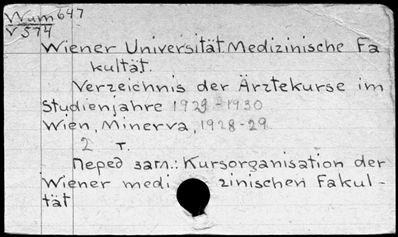 Wum 647
V 574
Wiener Universität Medizinische Fa
kultät.
Verzeichnis der Ärztekurse im
Studienjahre 1929-1930
Wien, Minerva, 1928-29
2 т.
Перед загл.: Kursorganisation der
Wiener medizinischen Fakul-
tät